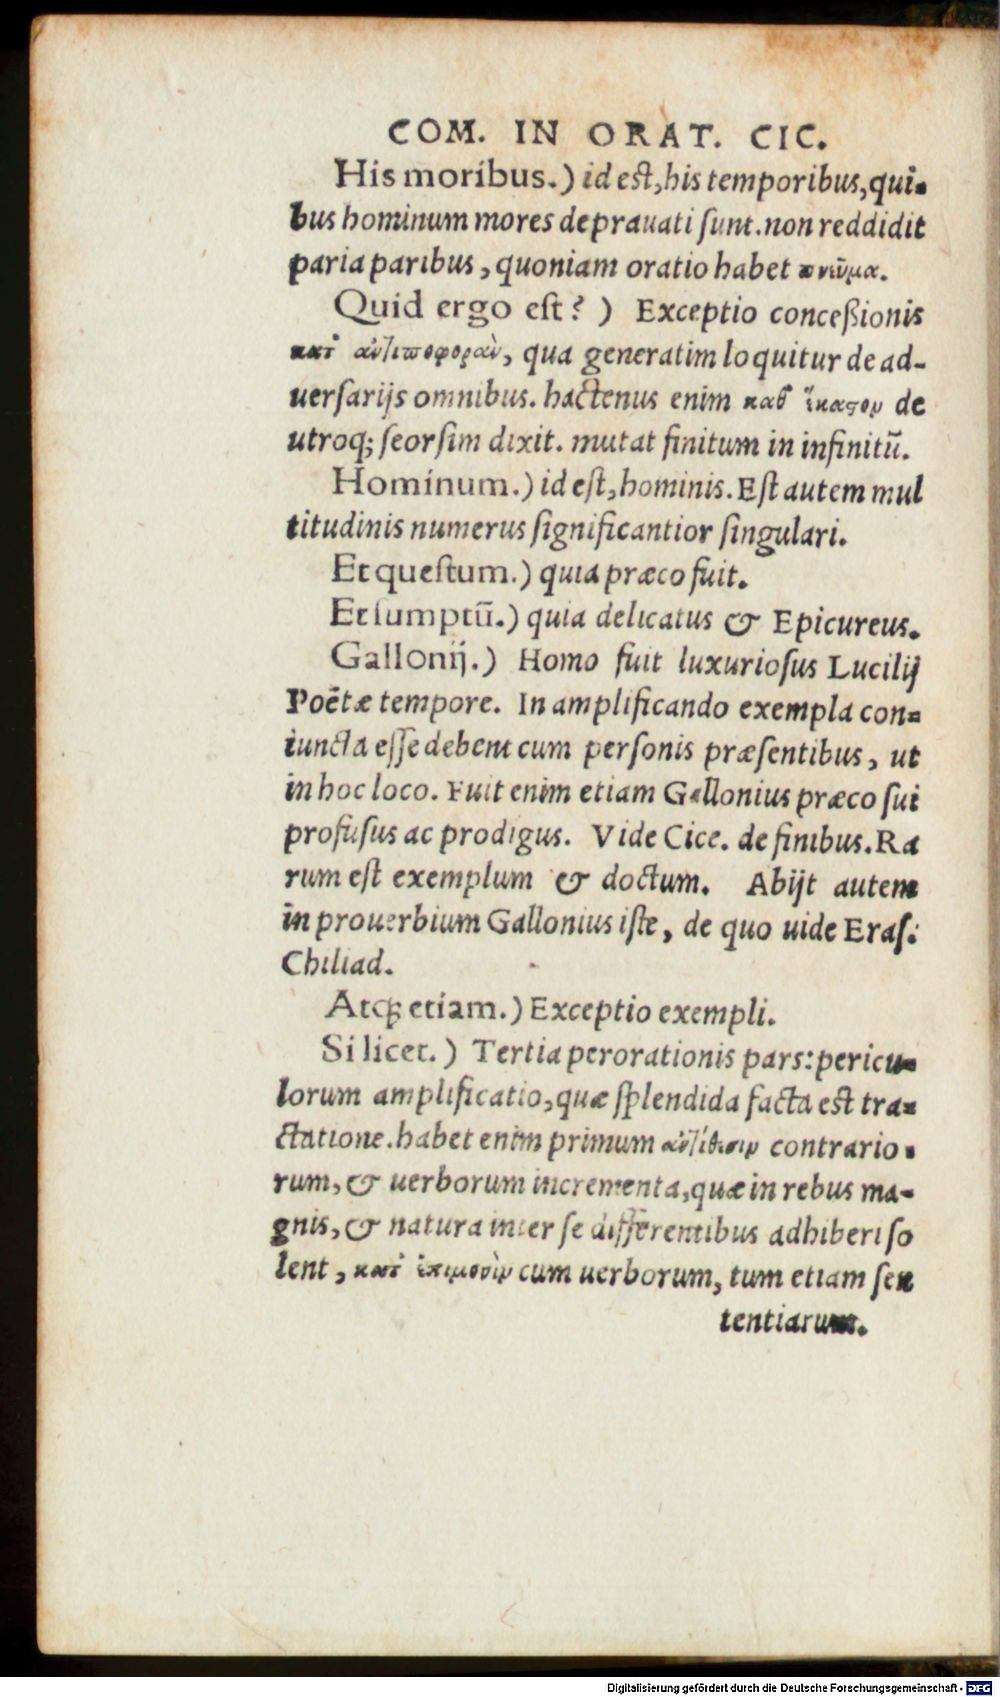 COM. IN ORAT. CIC.
His moribus.) id est, his temporibus, qui-
bus hominum mores deprauati sunt. non reddidit
paria paribus, quoniam oratio habet πνεῦμα.
Quid ergo est? ) Exceptio conceßionis
κατ' ἀνθυποφορὰν, qua generatim loquitur de ad-
uersarijs omnibus. hactenus enim καθ' ἕκαστον de
utroq; seorsim dixit. mutat finitum in infinitũ.
Hominum.) id est, hominis. Est autem mul
titudinis numerus significantior singulari.
Et questum.) quia præco fuit.
Et sumptũ.) quia delicatus & Epicureus.
Gallonij.) Homo fuit luxuriosus Lucilij
Poëtæ tempore. In amplificando exempla con-
iuncta esse debent cum personis præsentibus, ut
in hoc loco. Fuit enim etiam Gallonius præco sui
profusus ac prodigus. Vide Cice. de finibus. Ra
rum est exemplum & doctum. Abijt autem
in prouerbium Gallonius iste, de quo uide Eras.
Chiliad.
Atq; etiam.) Exceptio exempli.
Si licet.) Tertia perorationis pars: pericu-
lorum amplificatio, quæ splendida facta est tra-
ctatione. habet enim primum ἀντίθεσιν contrario-
rum, & uerborum incrementa, quæ in rebus ma-
gnis, & natura inter se differentibus adhiberi so
lent, κατ' ἐπιμονὴν cum uerborum, tum etiam sen
tentiarum.
Digitalisierung gefördert durch die Deutsche Forschungsgemeinschaft - DFG